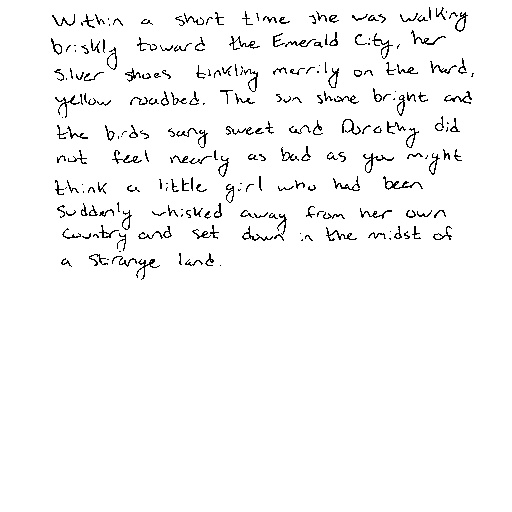 Within a short time she was walking
briskly toward the Emerald City, her
silver shoes tinkling merrily on the hard,
yellow roadbed. The sun shone bright and
the birds sang sweet and Dorothy did
not feel nearly as bad as you might
think a little girl who had been
suddenly whisked away from her own
country and set down in the midst of
a strange land.